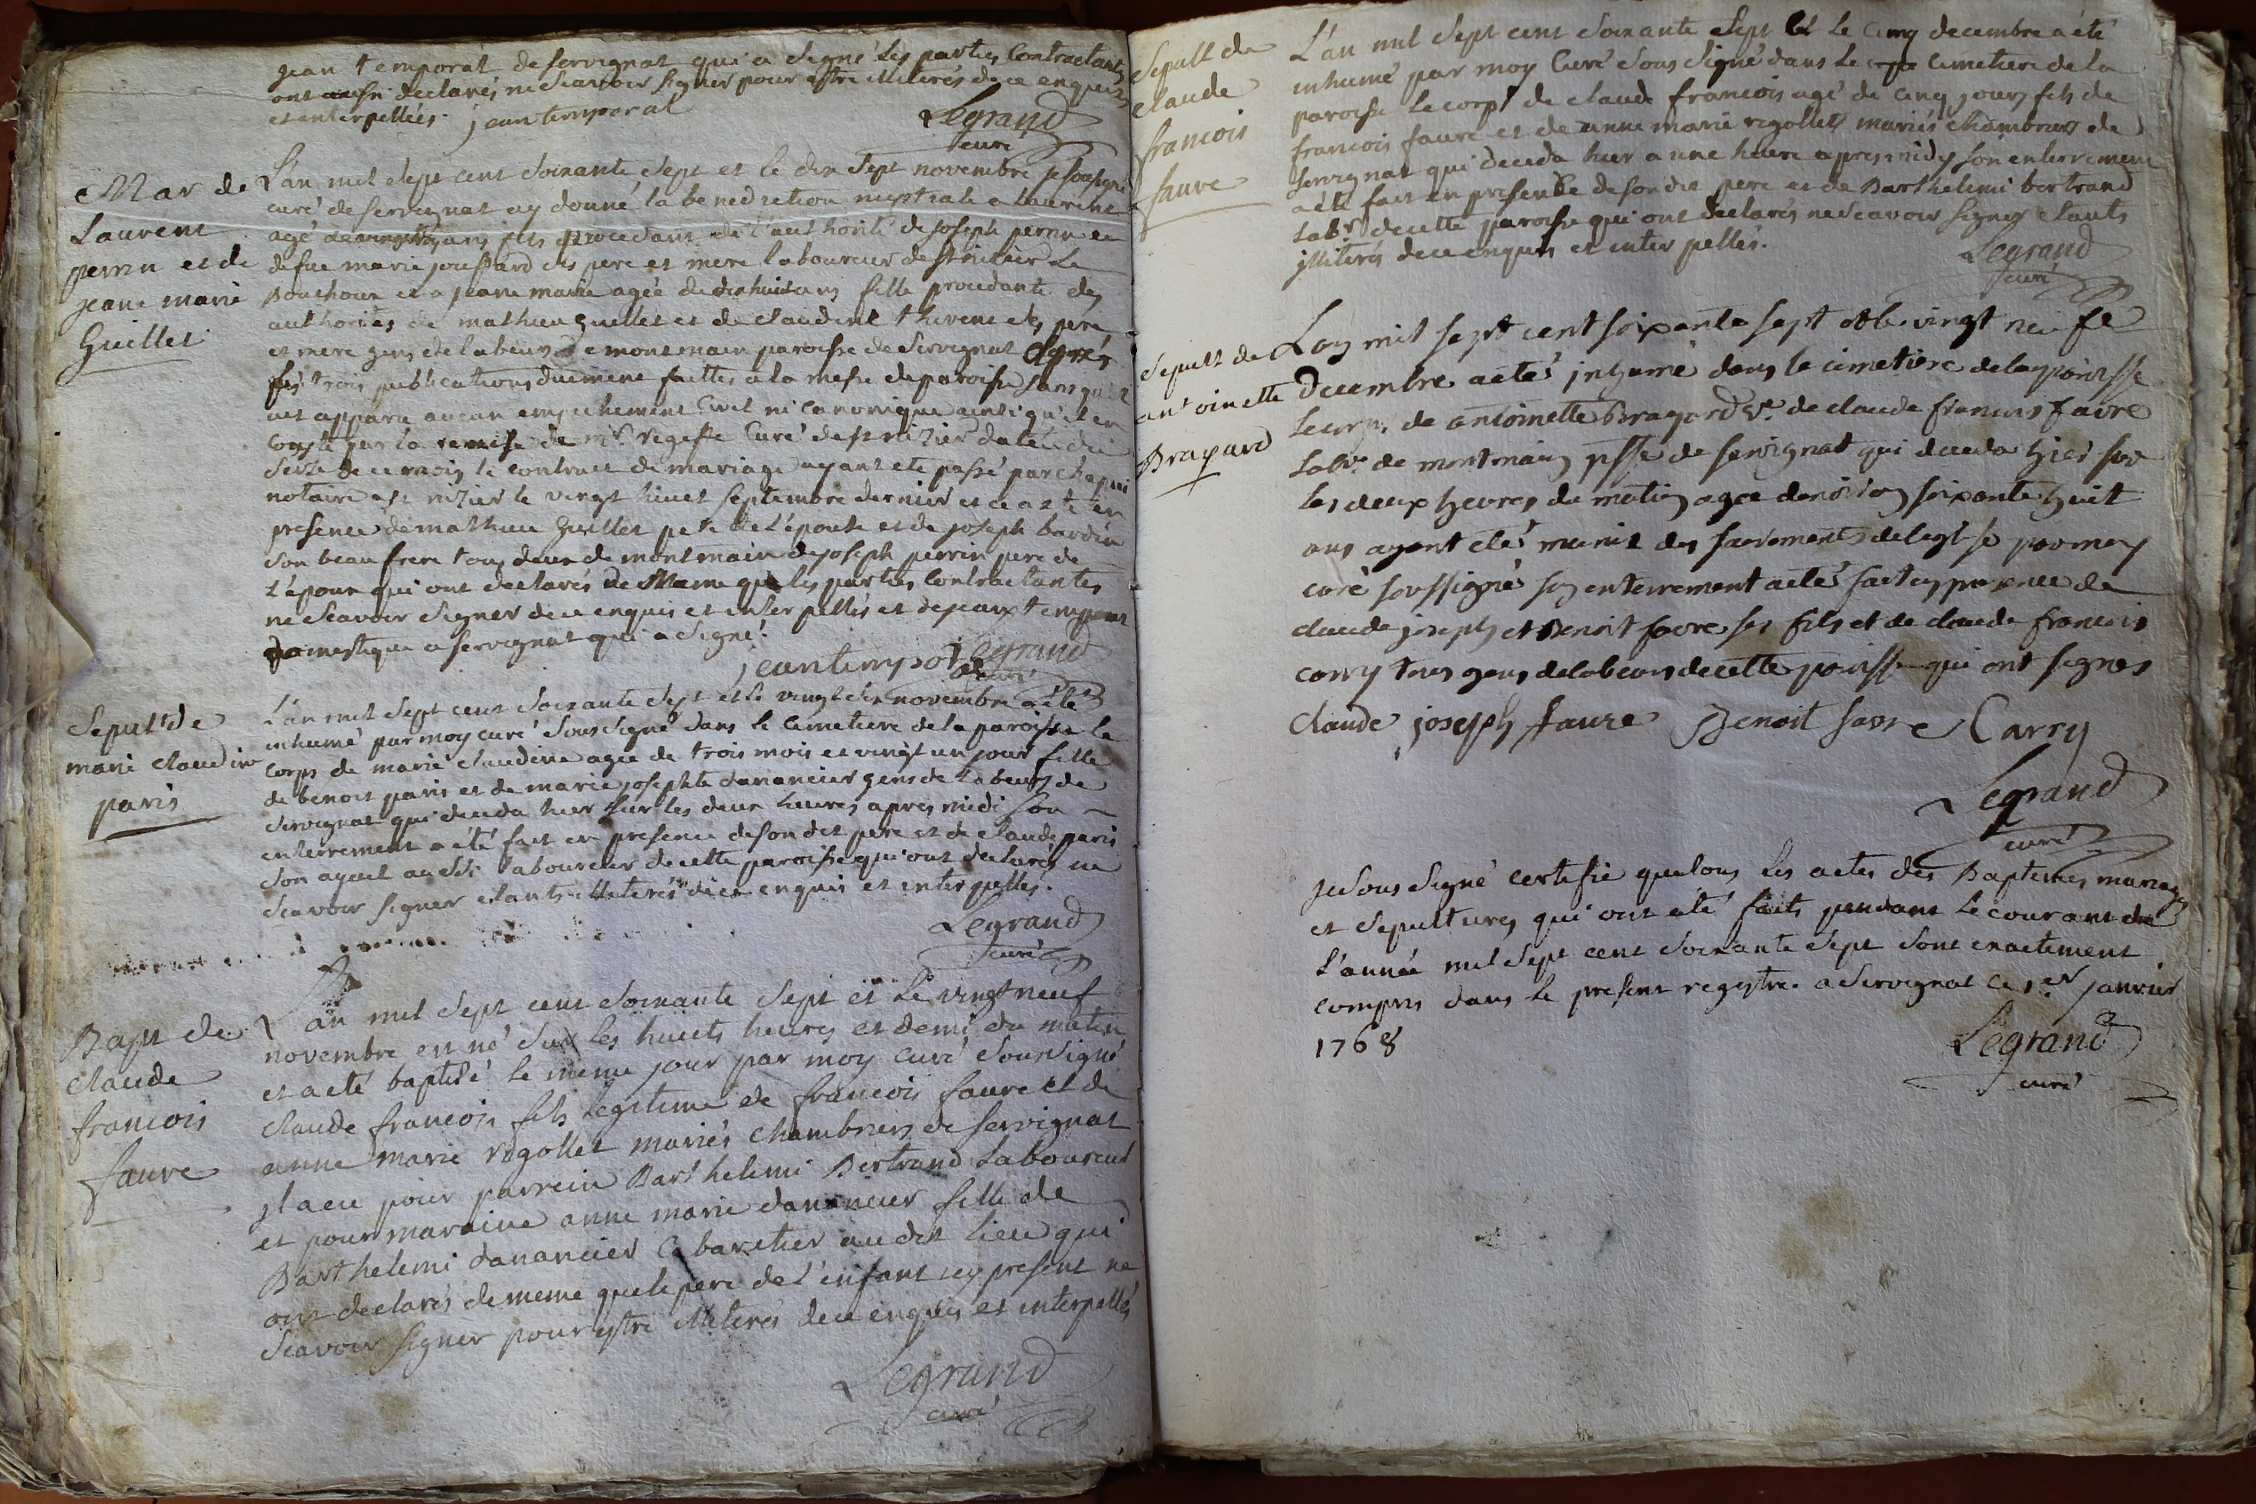 jean temporat de servignat qui a signé les parties contractantes
ont aussi declarés ne scavoir signer pour estre illiterés de ce enquis
et interpellées. jean temporal
Legrand
curé
Mar de
Laurent
perrin et de
jeane marie
Guillet
L'an mil sept cent soixante sept et le dix sept novembre je soussigné
curé de servignat ay donné la benediction nuptiale a laurent
agé de ans fils procedant de l'authorité de joseph perrin et
defue marie joussard ses pere et mere laboureur de st nizier Le
Bouchoux et a jeane marie agée de dixhuit ans fille procedante des
authorités de mathieu guillet et de claudine thevent ses père
et mere gens de labeurs de montmain paroisse de servignat apres
les trois publications duement faittes a la messe de paroisse sans qu'il
ait apparu aucun empechement civil ni canonique ainsi qu'il en
conste par la remise de mr regeffe curé de st nizier datée du
seize de ce mois le contract de mariage ayant eté passé par chapuis
notaire a st nizier le vingt huict septembre dernier et ce a eté en
presence de mathieu guillet pere de l'épouse et de joseph bardin
son beau frere tous deux de montmain de joseph perrin pere de
l'époux qui ont declarés de Meme que les parties contractantes
ne scavoir signer de ce enquis et interpellés et de jean temporat
domestique a servignat qui a signé.
jean temporal Legrand
curé
Sepult de
marie claudine
paris
L'an mil sept cent soixante sept et le vingt six novembre a été
inhumé par moy curé sous signé dans le cimetiere de la paroisse le
corps de marie claudine agée de trois mois et vingt un jour fille
de benoit paris et de marie josephte danancier gens de labeurs de
servignat qui deceda hier sur les deux heures apres midi son
enterrement a été fait en presence de son dit pere et de claude paris
son ayeul aussi laboureur de cette paroisse qui ont declarés ne
scavoir signer etants illiterés de ce enquis et interpellés.
Legrand
curé
Bapt de
claude
francois
faure
L'an mil sept cent soixante sept et le vingt neuf
novembre est né sur les huict heures et demi du matin
et a eté baptisé le meme jour par moy curé soussigné
claude francois fils legitime de francois faure et de
anne marie rigollet mariés chambriers de servignat
il a eu pour parrein Barthelemi Bertrand Laboureur
et pour maraine anne marie danancier fille de
Barthelemi danancier cabaretier au dit lieu qui
ont declarés de meme que le pere de l'enfant icy present ne
scavoir signer pour estre illiterés de ce enquis et interpellés
Legrand
curé
Sepult de
claude
francois
faure
L'an mil sept cent soixante sept et le cinq decembre a été
inhumé par moy curé sous signé dans le cimetiere de la
paroisse le corps de claude francois agé de cinq jours fils de
francois faure et de anne marie rigollet mariés chambriers de
servignat qui deceda hier a une heure apres midy son enterrement
a été fait en presence de son dit pere et de Barthelemi bertrand
labr de cette paroisse qui ont declarés ne scavoir signer etants
illiterés de ce enquis et interpellés.
Legrand
curé
Sepult de
antoinette
Bragard
L'an mil sept cent soixante sept et le vingt neufe
Decembre a etés inhumé dans le cimetiere de la paroisse
le corps de antoinette Bragard ve de claude francois favre
labr de montmain psse de servignat qui deceda hier sur
les deux heures du matin agée denviron soixante huit
ans ayant étés munie des sacrements de leglise par moy
curé soussigné son enterrement a etés fait en presence de
claude joseph et Benoit favre ses fils et de claude francois
carry tous gens de labeurs de cette paroisse qui ont signes
Claude joseph faure Benoit favre Carry
Legrand
curé
Je sous signé certifie que tous les actes des Baptemes mariages
et sepultures qui ont été faits pendant le courant de
l'année mil sept cent soixante sept sont exactement
compris dans le present registre. a servignat ce 1er janvier
1768
Legrand
curé